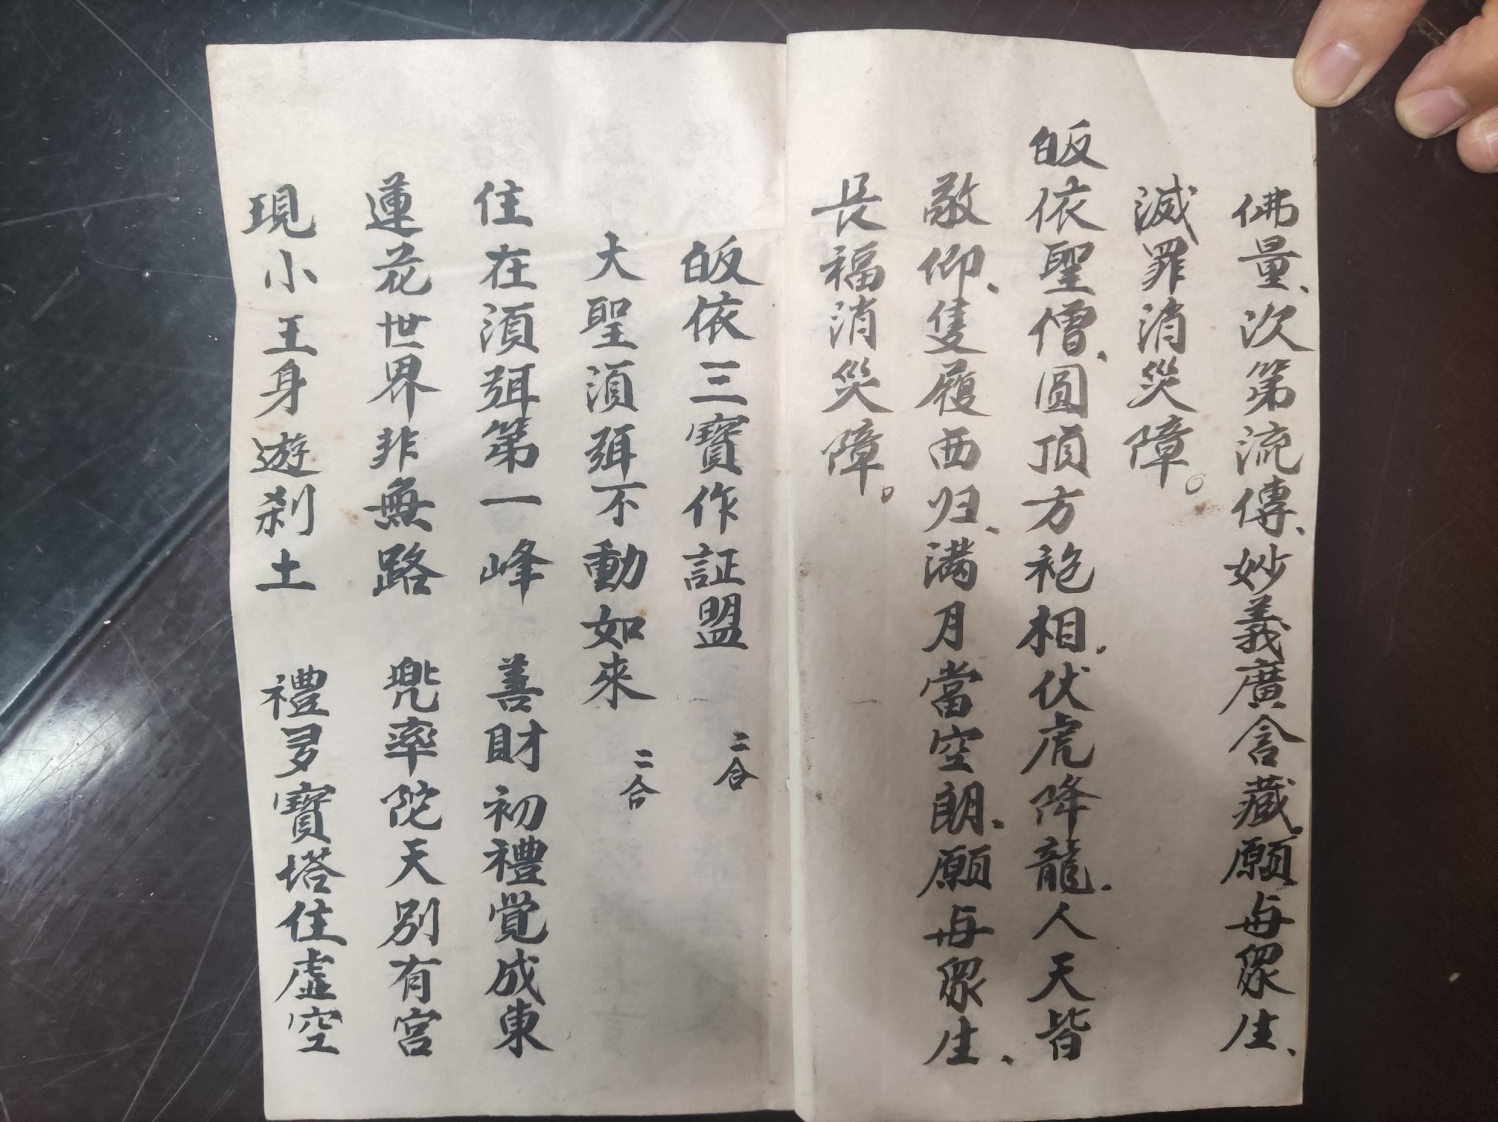 佛量、次第流傳、妙義廣含藏、願与眾生、
滅罪消災障。
皈依聖僧、圓頂方袍相、伏虎降龍、人天皆
敬仰、隻履西归、满月當空朗、願与眾生、
長福消災障。
皈依三寶作証盟 二合
大聖須弭不動如來 二合
住在須弭第一峰 善財初禮覺成東
蓮花世界非無路 兠率陀天別有宮
現小王身遊刹土 禮多寶塔住虛空